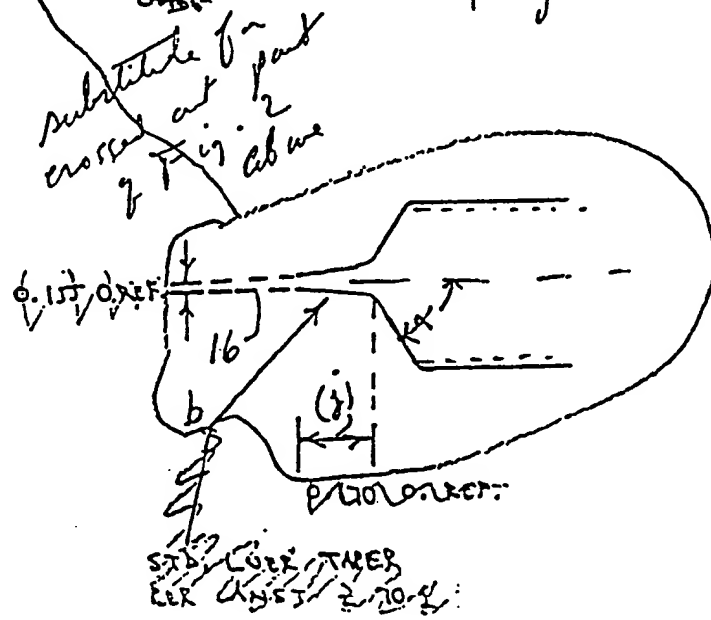 substitute for
crossed out part
of Fig. 2
above
0.155 0 REF.
16
α
b
(j)
0.170 0. REF.
STD. LUER TAPER
PER ANSI Z 70.